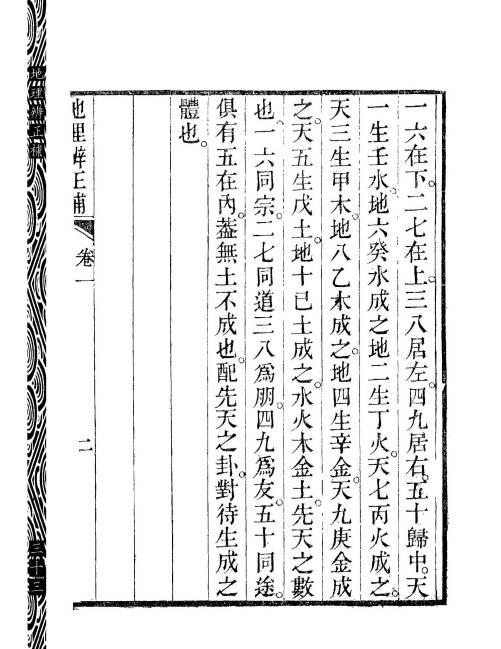 一六在下。二七在上。三八居左。四九居右。五十歸中。天
一生壬水。地六癸水成之。地二生丁火。天七丙火成之。
天三生甲木。地八乙木成之。地四生辛金。天九庚金成
之。天五生戊土。地十已土成之。水火木金土。先天之數
也。一六同宗。二七同道。三八爲朋。四九爲友。五十同途。
俱有五在內。葢無土不成也。配先天之卦。對待生成之
體也。
地理辨正補 卷一 二
地理辨正補
三十三